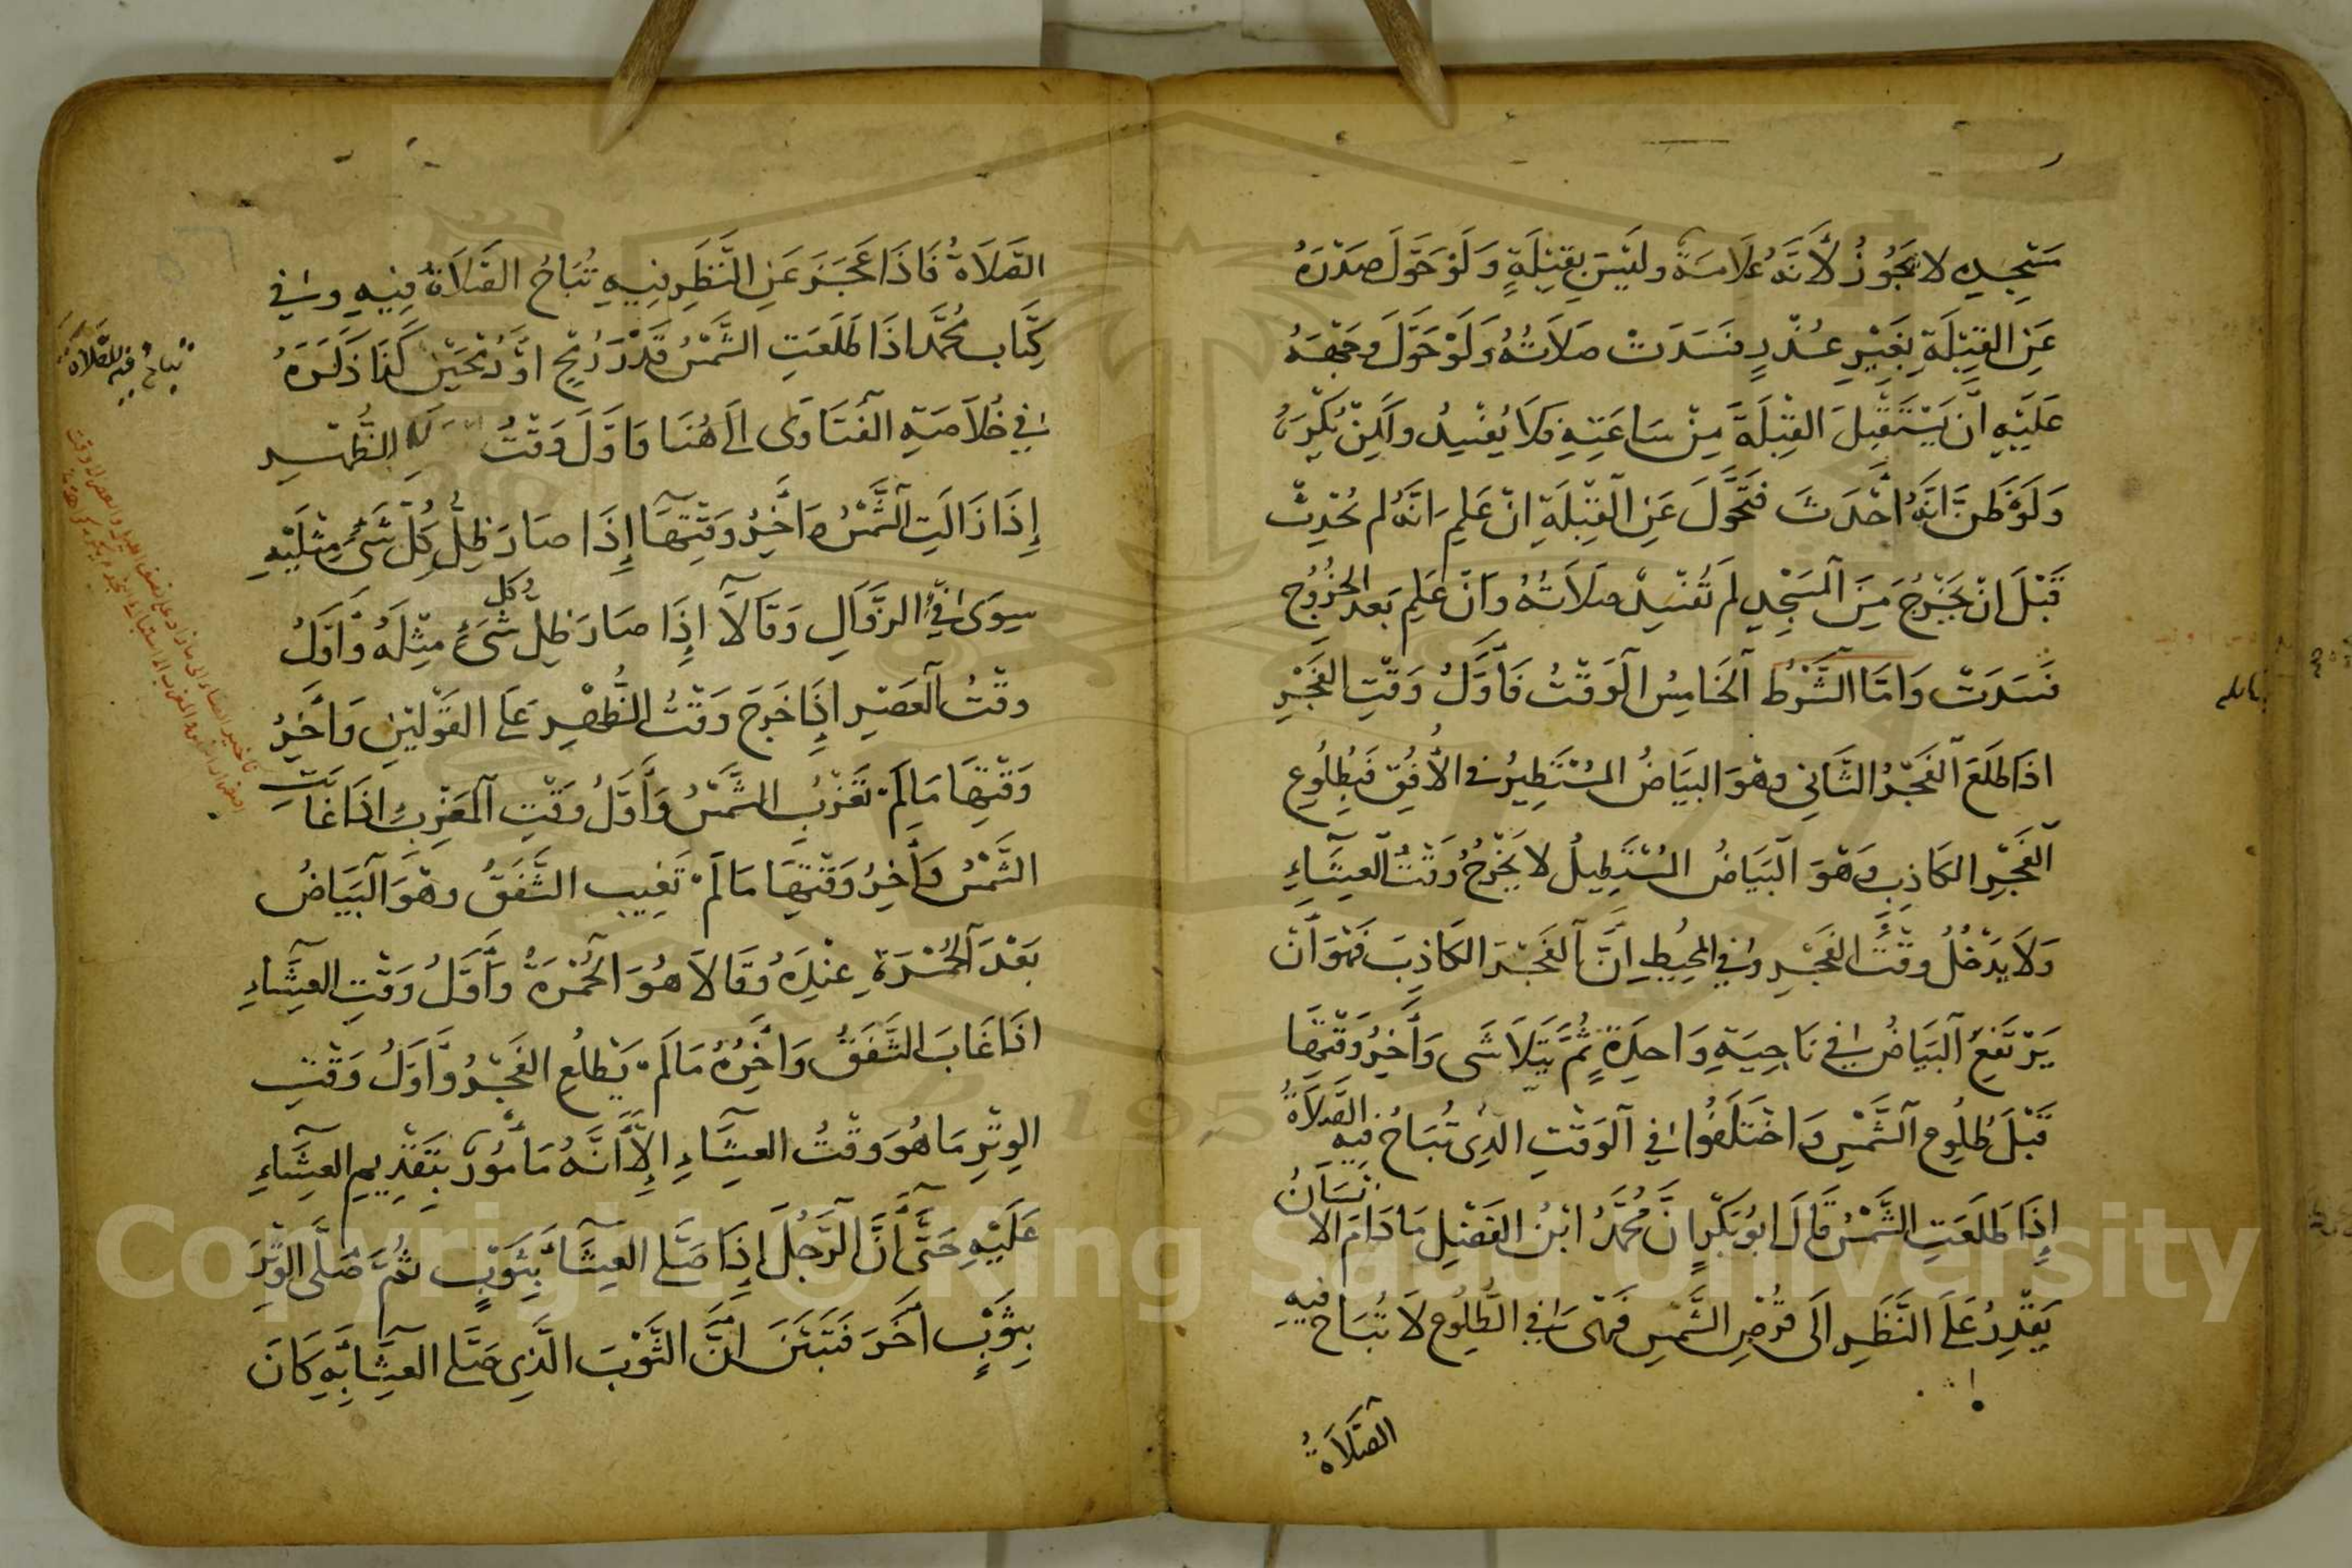 مَسْجِدِهِ لا يَجُوزُ لأَنَّهُ عَلَامَةٌ وليْسَ بِقِبْلَةٍ وَلَوْ حَوَّلَ صَدْرَهُ
عَنِ القِبْلَةِ بِغَيْرِ عُذْرٍ فَسَدَتْ صَلَاتُهُ وَلَوْ حَوَّلَ وَجْهَهُ
عَلَيْهِ اَنْ يَسْتَقْبِلَ القِبْلَةَ مِنْ سَاعَتِهِ وَلَا يُفْسِدُ ولَكِنْ يُكْرَهُ
وَلَوْ ظَنَّ اَنَّهُ اَحْدَثَ فَتَحَوَّلَ عَنِ الْقِبْلَةِ اِنْ عَلِمَ اَنَّهُ لم يُحْدِثْ
قَبْلَ اَنْ يَخْرُجَ مِنَ الْمَسْجِدِ لَمْ تُفْسِدْ صَلَاتُهُ وَاِنْ عَلِمَ بَعد الخُرُوج
فَسَدَتْ وَاَمَّا الشَّرْطُ الْخَامِسُ الْوَقْتُ فَاَوَّلُ وَقْتِ الفَجْرِ
اذَا طَلَعَ الْفَجْرُ الثَّانِي وهُوَ البَيَاضُ المُسْتَطِيرُ في الأُفُقِ فَبِطُلُوعِ
الْفَجْرِ الكَاذِبِ وَهُوَ الْبَيَاضُ المُسْتَطِيلُ لا يَخْرُجُ وَقْتُ الْعِشَاءِ
وَلَا يَدْخُلُ وَقْتُ الفَجْرِ وفي المُحِيْطِ اِنَّ الْفَجْرَ الكَاذِبَ فَهُوَ اَنْ
يَرْتَفِعَ الْبَيَاضُ فِي نَاحِيَةٍ وَاحِدَةٍ ثُمَّ يَتَلَاشَى وَآخِرُ وَقْتِهَا
قَبْلَ طُلُوعِ الشَّمْسِ وَاخْتَلَفُوا فِي الْوَقْتِ الَّذِى تُبَاحُ فِيهِ الصَّلَاةُ
إِذَا طَلَعَتِ الشَّمْسُ قَالَ ابُو بَكْرٍ مُحَمَّدُ ابْنُ الفَضْلِ مَادَامَ الانْسَانُ
يَقْدِرُ عَلَى النَّظَرِ اِلَى قُرْصِ الشَّمْسِ فَهِىَ فِي الطُّلُوعِ لَا تُبَاح فِيهِ
الصَّلَاةُ
الصَّلَاةُ فَاذَا عَجَزَ عَنِ النَّظَرِ فِيهِ تُبَاحُ الصَّلَاةُ فِيهِ وفي
كِتَاب مُحَمَّد اذَا طَلَعَتِ الشَّمْسُ قَدْرَ رُمْحٍ اوْ رُمْحَيْن كَذَا ذَكَرَهُ
فِي خُلَاصَةِ الفَتَاوَى الَى هُنَا وَاَوَّلَ وَقْتُ الظُّهْرِ
إِذَا زَالَتِ الشَّمْسُ وَاَخِرُ وَقْتِهَا إِذَا صَارَ ظِلُّ كُلِّ شَىْءٍ مِثْلَيْهِ
سِوَى فَيْءِ الزَّوَالِ وَقَالَا إِذَا صَارَ ظِلُّ كُلِّ شَىْءٍ مِثْلَهُ وَاَوَّلُ
وقْتُ الْعَصْرِ إِذَا خَرَجَ وَقْتُ الظُّهْرِ عَلَى القَوْلَيْنِ وَاَخِرُ
وَقْتِهَا مَا لَمْ تَغْرُبِ الشَّمْسُ وَاَوَّلُ وَقْتِ الْمَغْرِبِ اِذَا غَابَتِ
الشَّمْسُ وَاَخِرُ وَقْتِهَا مَا لَمْ تَغِيبِ الشَّفَقُ وهُوَ الْبَيَاضُ
بَعْدَ الْحُمْرَةِ عِنْدَهُ وَقَالَا هُوَ الْحُمْرَةُ وَاَوَّلُ وَقْتِ العِشَاءِ
اذَا غَابَ الشَّفَقُ وَاَخِرُهُ مَا لَمْ يَطْلُعِ الفَجْرُ وَاَوَّلُ وَقْتِ
الوِتْرِ مَا هُوَ وَقْتُ العِشَاءِ إِلَّا اَنَّهُ مَأْمُورٌ بِتَقْدِيمِ العِشَاءِ
عَلَيْهِ حَتَّى أَنَّ الرَّجُلَ إِذَا صَلَّى العِشَاءَ بِثَوْبٍ ثُمَّ صَلَّى الوِتْرَ
بِثَوْبٍ اَخَرَ فَتَبَيَّنَ اَنَّ الثَّوْبَ الَّذِى صَلَّى العِشَا بِهِ كَانَ
تباح فيه الصلاة
Copyright © King Saud University